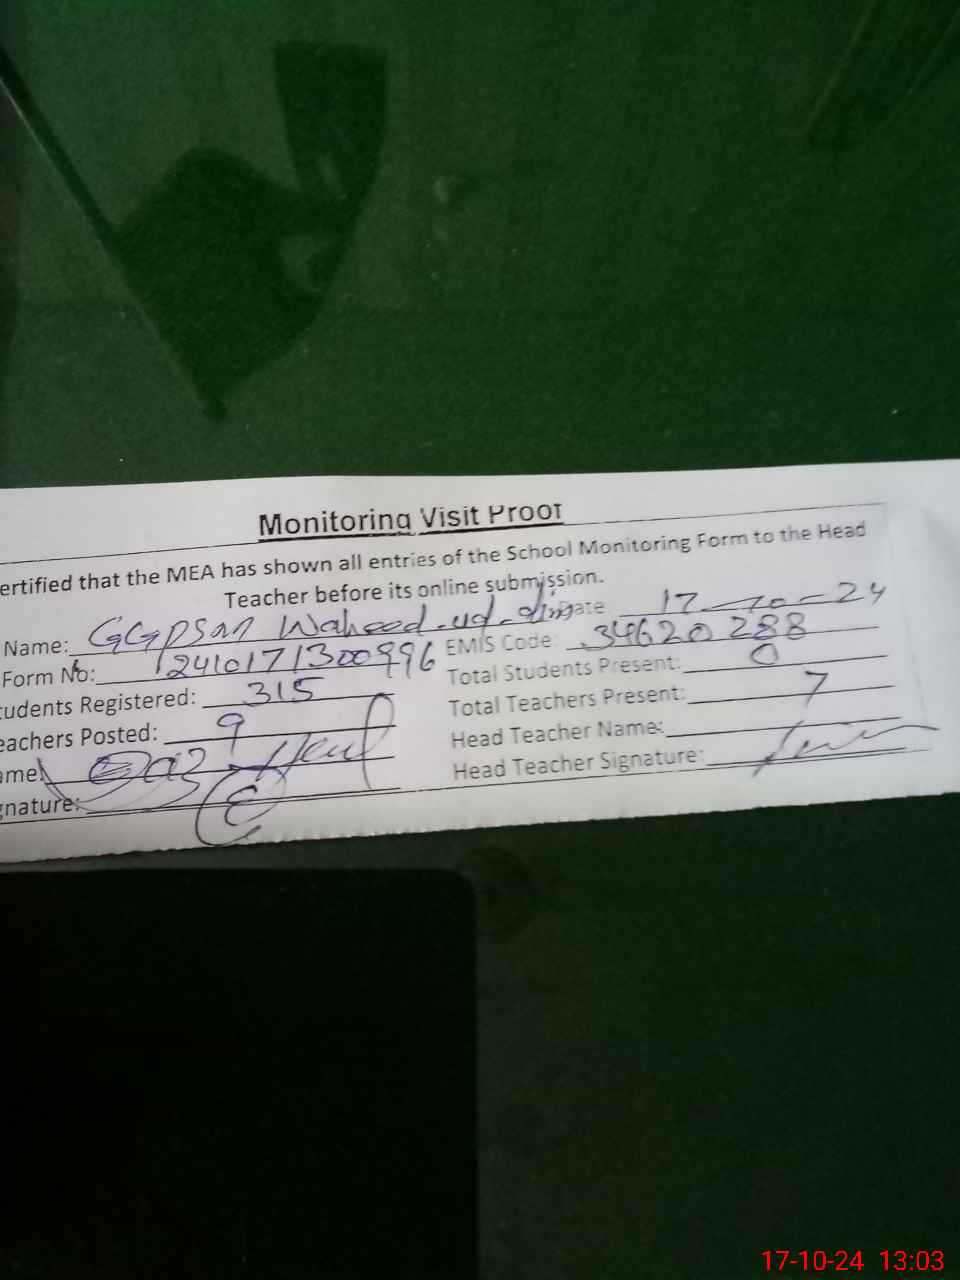 Monitoring Visit Proof
ertified that the MEA has shown all entries of the School Monitoring Form to the Head
Teacher before its online submission.
Name: Waheed-ud-din Date 17-10-24
Form No: 2410171300996 EMIS Code: 34620288
tudents Registered: 315 Total Students Present: 0
eachers Posted: 9 Total Teachers Present: 7
ame: Head Teacher Name:
gnature: Head Teacher Signature:
17-10-24 13:03